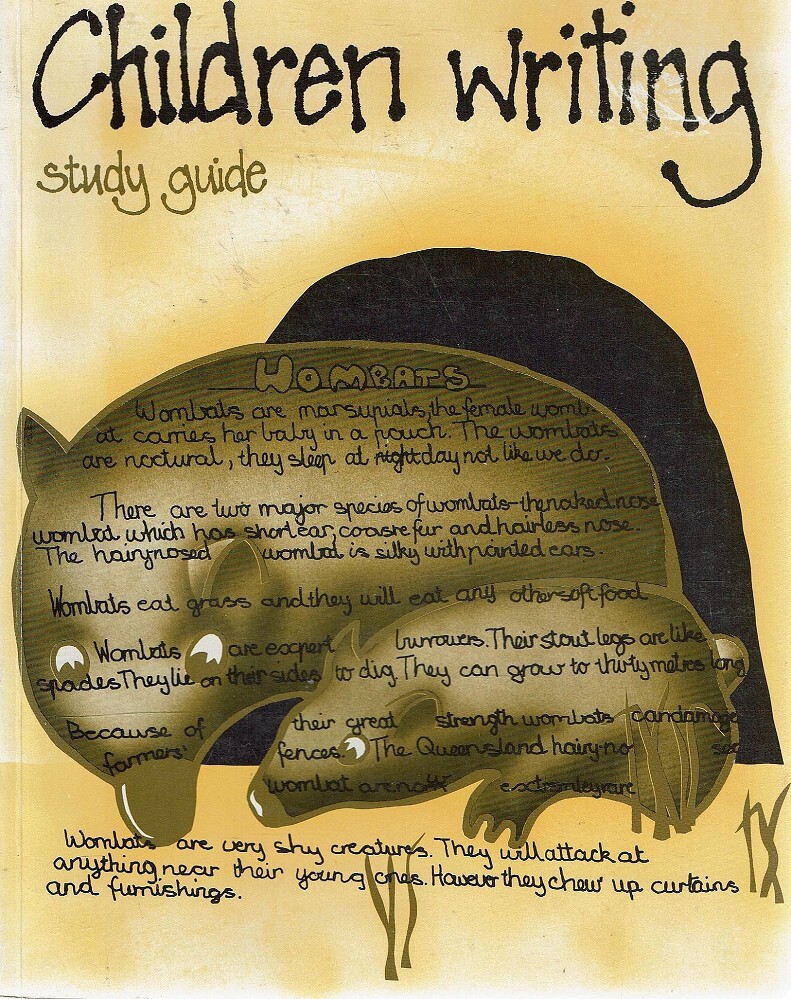 Children writing
study guide
WOMBATS
Wombats are marsupials, the female womb-
at carries her baby in a pouch. The wombats
are noctural, they sleep at night day not like we do.
There are two major species of wombats-the naked nose
wombat which has short ear, coasre fur and hairless nose.
The hairynosed wombat is silky with pointed ears.
Wombats eat grass and they will eat any other soft food
Wombats are expert burrowers. Their stout legs are like
spades They lie on their sides to dig. They can grow to thirty metres long
Because of their great strength wombats can damage
farmers' fences. The Queensland hairy-no se
wombat are now extremley rare
Wombats are very shy creatures. They will attack at
anything near their young ones. However they chew up curtains
and furnishings.